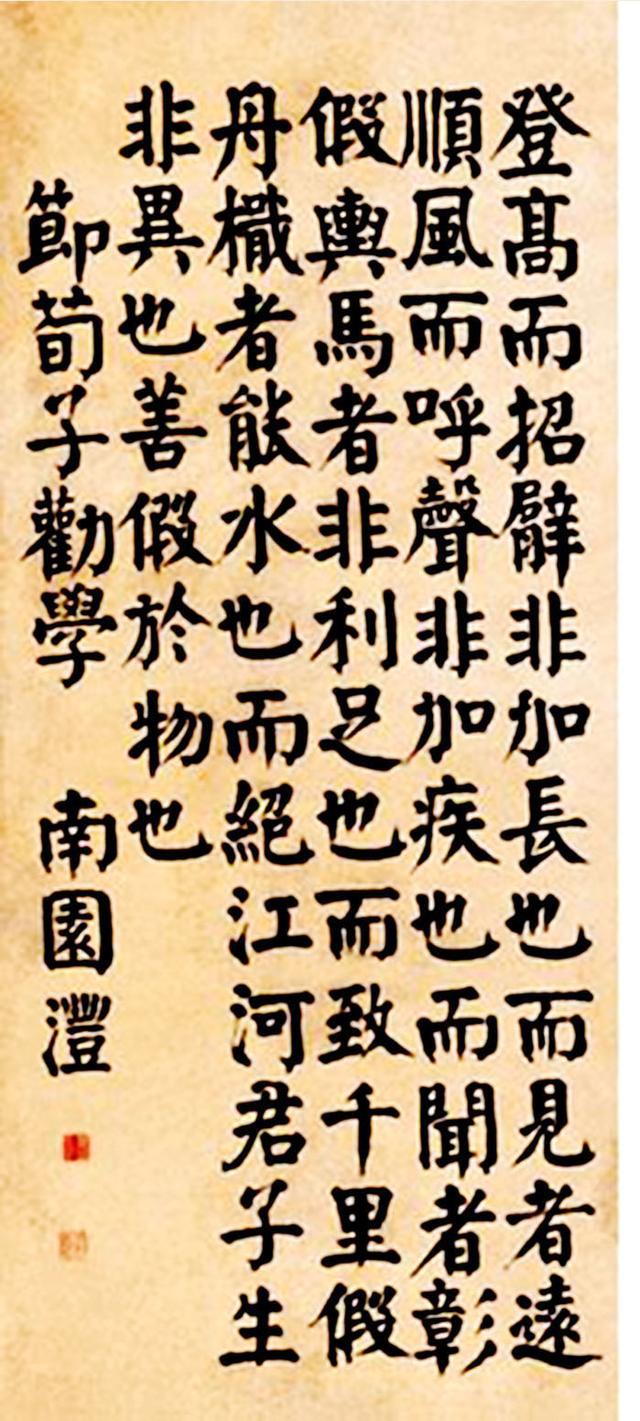 登髙而招臂非加長也而見者遠
順風而呼聲非加疾也而聞者彰
假輿馬者非利足也而致千里假
舟檝者能水也而絕江河君子生
非異也善假於物也
節荀子勸學 南園灃